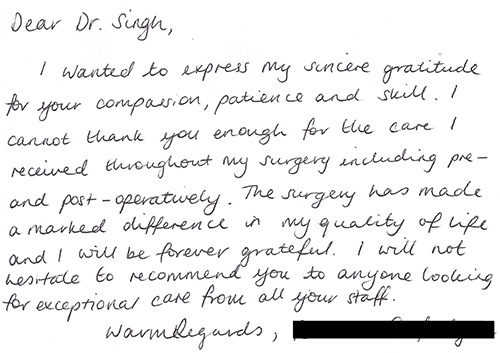 Dear Dr. Singh,
I wanted to express my sincere gratitude
for your compassion, patience and skill. I
cannot thank you enough for the care I
received throughout my surgery including pre-
and post-operatively. The surgery has made
a marked difference in my quality of life
and I will be forever grateful. I will not
hesitate to recommend you to anyone looking
for exceptional care from all your staff.
Warm Regards,